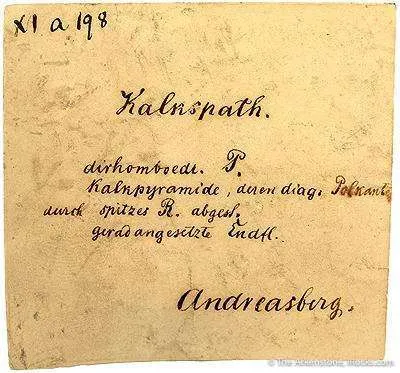 XI a 198
Kalkspath.
dirhomboedr. P.
Kalkpyramide, deren diag. Polkant.
durch spitzes R. abgest.
gerad angesetzte Endfl.
Andreasberg.
© The Arkenstone, iRocks.com